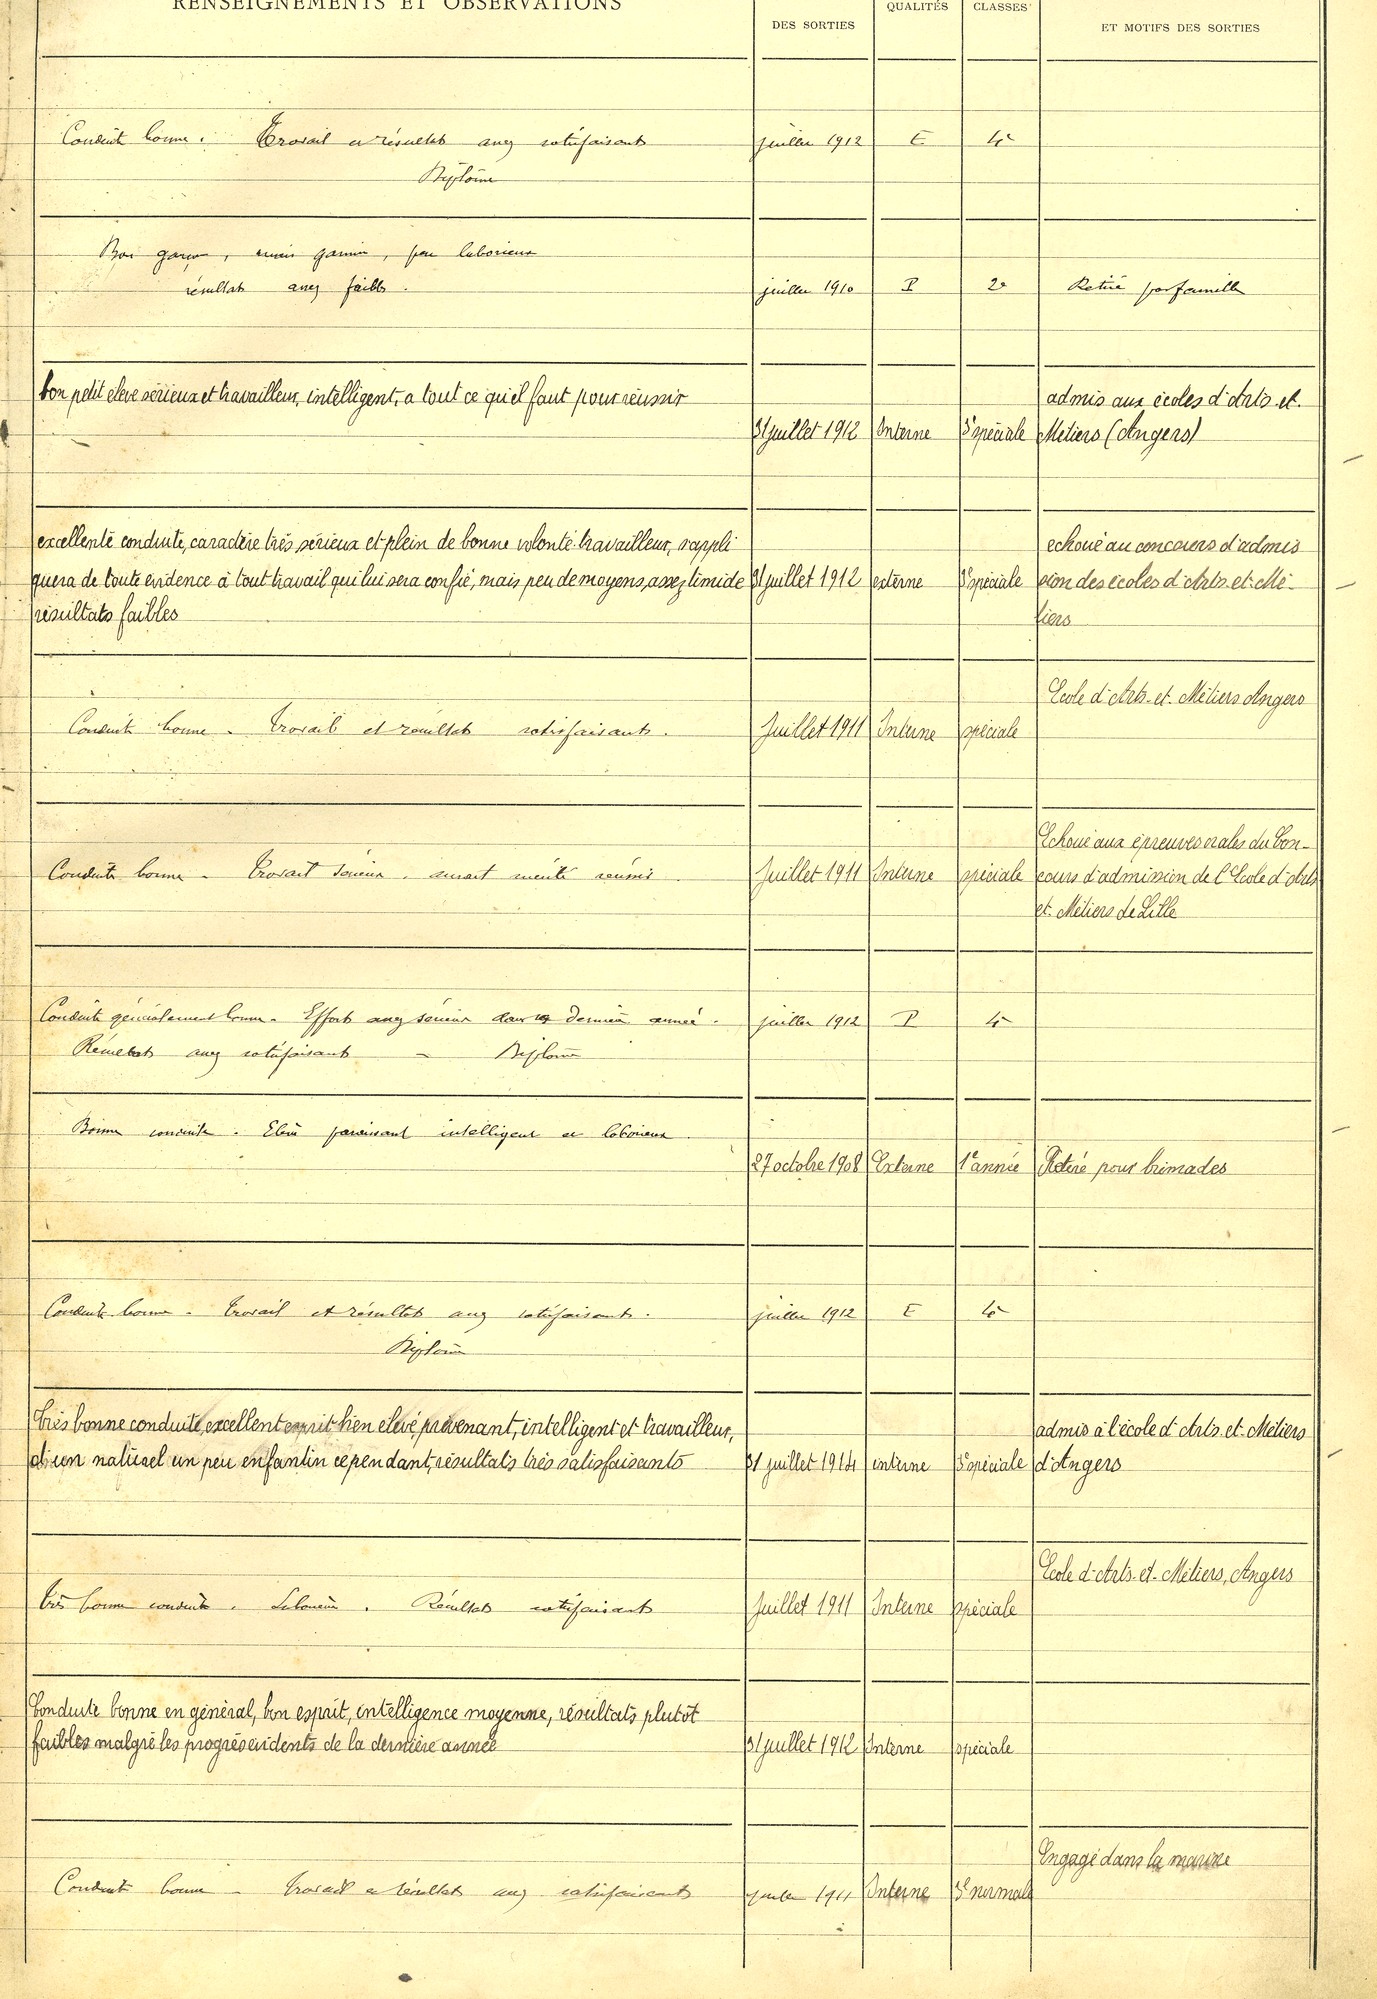 RENSEIGNEMENTS ET OBSERVATIONS
DES SORTIES
QUALITÉS
CLASSES
ET MOTIFS DES SORTIES
Conduite bonne. Travail et résultats assez satisfaisants
Diplôme
juillet 1912
E
4e
Bon garçon, mais gamin, peu laborieux
résultats assez faibles.
juillet 1910
P
2e
Retiré par famille
bon petit élève sérieux et travailleur, intelligent, a tout ce qu'il faut pour réussir
31 juillet 1912
Interne
3e spéciale
admis aux écoles d'Arts et
Métiers (Angers)
excellente conduite, caractère très sérieux et plein de bonne volonté travailleur, s'appli
quera de toute évidence à tout travail qui lui sera confié, mais peu de moyens, assez timide
résultats faibles
31 juillet 1912
externe
3e spéciale
echoué au concours d'admis
sion des écoles d'Arts-et-Mé-
tiers
Conduite bonne. Travail et résultats satisfaisants.
Juillet 1911
Interne
spéciale
Ecole d'Arts-et-Métiers Angers
Conduite bonne. Travail sérieux. aurait mérité réussir.
Juillet 1911
Interne
spéciale
Echoué aux épreuves orales du Con-
cours d'admission de l'Ecole d'Arts
et Métiers de Lille
Conduite généralement bonne. Efforts assez sérieux dans dernière année.
Résultats assez satisfaisants - Diplôme
juillet 1912
P
4e
Bonne conduite. Elève paraissant intelligent et laborieux.
27 octobre 1908
Externe
1e année
Retiré pour brimades
Conduite bonne. Travail et résultats assez satisfaisants.
Diplôme
juillet 1912
E
4e
très bonne conduite, excellent esprit bien elevé, prévenant, intelligent et travailleur,
d'un naturel un peu enfantin cependant, résultats très satisfaisants
31 juillet 1914
interne
3e spéciale
admis à l'école d'Arts-et-Métiers
d'Angers
Très bonne conduite. Laborieux. Résultats satisfaisants
Juillet 1911
Interne
spéciale
Ecole d'Arts-et-Métiers, Angers
Conduite bonne en général, bon esprit, intelligence moyenne, résultats plutôt
faibles malgré les progrès évidents de la dernière année
31 juillet 1912
Interne
spéciale
Conduite bonne - Travail et résultats assez satisfaisants
juillet 1911
Interne
3e normale
Engagé dans la marine